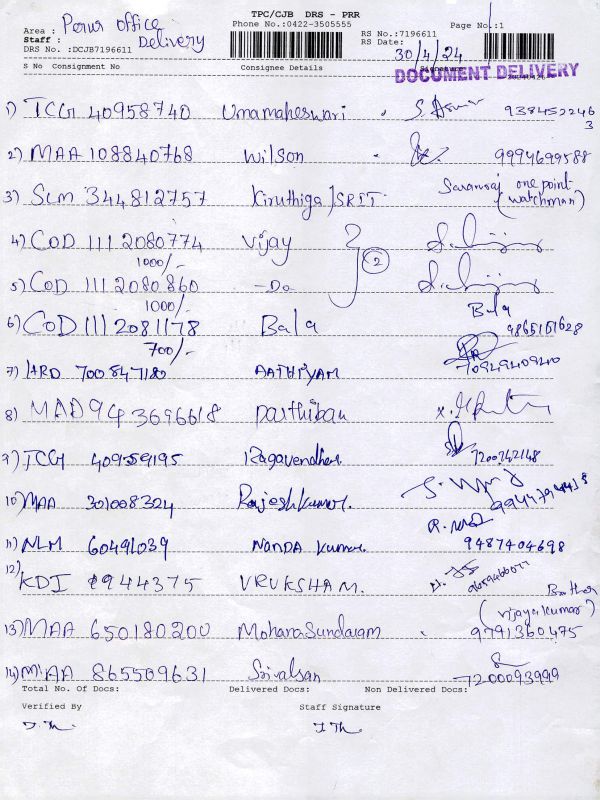 TPC/CJB DRS - PRR
Area : Perur office Phone No.:0422-3505555 Page No.:1
Staff : Delivery RS No.:7196611
DRS No. :DCJB7196611 RS Date: 30/4/24
S No Consignment No Consignee Details Signature
DOCUMENT DELIVERY
1) TCG 40958740 Umamaheswari 9384522463
2) MAA 108840768 Wilson 9994699588
3) SLM 344812757 Kiruthiga/SRIT Saravnraj one point (watchman)
4) COD 111 2080774 Vijay
1000/- 2
5) COD 111 2080860 -Do
1000/- Bala
6) COD 111 2081178 Bala 9865151628
700/-
7) HRD 700847180 AATHIYAM 7094940940
8) MAD 943696618 Parthiban
9) TCG 409559195 Ragavendher 7200242148
10) MAA 301008324 Rajeshkumar.
11) NLM 60491039 Nanda kumar. 9487404698
12) KDI 8944375 VRUKSHAM.
Brother
(Vijayakumar)
13) MAA 650180200 MohanaSundaram 9791360475
14) MAA 865509631 Srivalsan 7200093999
Total No. Of Docs: Delivered Docs: Non Delivered Docs:
Verified By Staff Signature